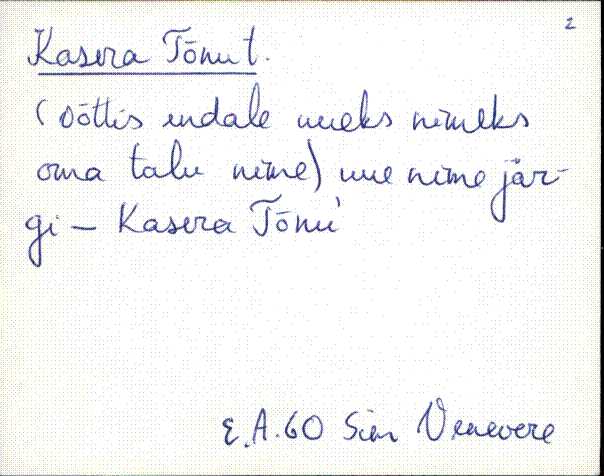 2
Kasera Tõnu t.
(võttis endale uueks nimeks
oma talu nime) uue nime jär-
gi – Kasera Tõnu
E.A. 60 Sim Venevere